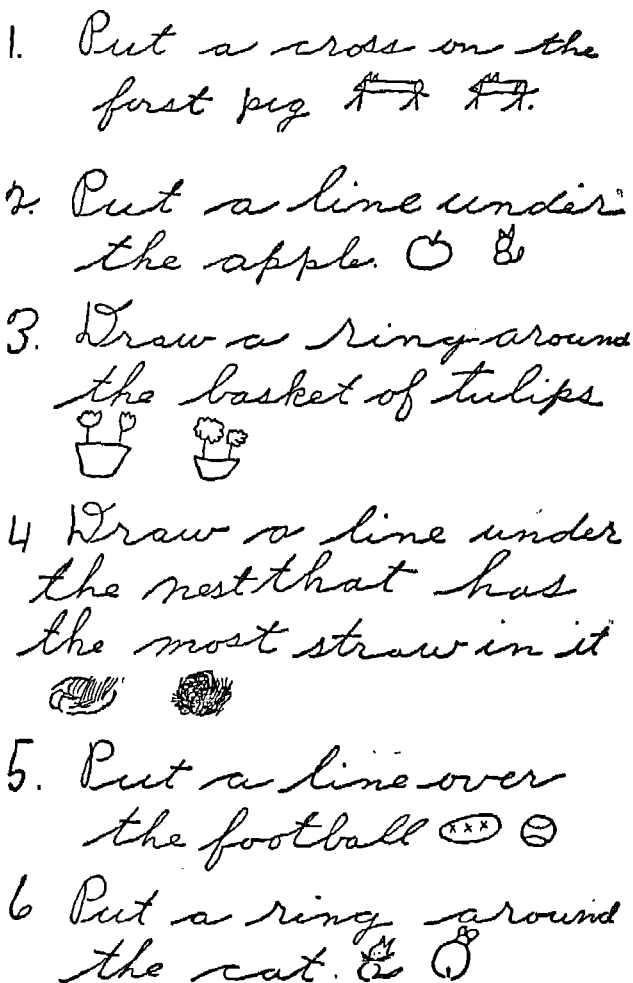 1. Put a cross on the
first pig
2. Put a line under
the apple.
3. Draw a ring around
the basket of tulips
4 Draw a line under
the nest that has
the most straw in it
5. Put a line over
the football
6 Put a ring around
the cat.